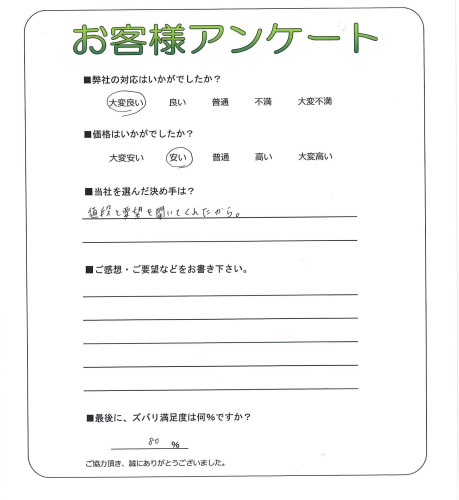 お客様アンケート
■弊社の対応はいかがでしたか？
大変良い 良い 普通 不満 大変不満
■価格はいかがでしたか？
大変安い 安い 普通 高い 大変高い
■当社を選んだ決め手は？
値段と要望を聞いてくれたから。
■ご感想・ご要望などをお書き下さい。
■最後に、ズバリ満足度は何%ですか？
80 %
ご協力頂き、誠にありがとうございました。